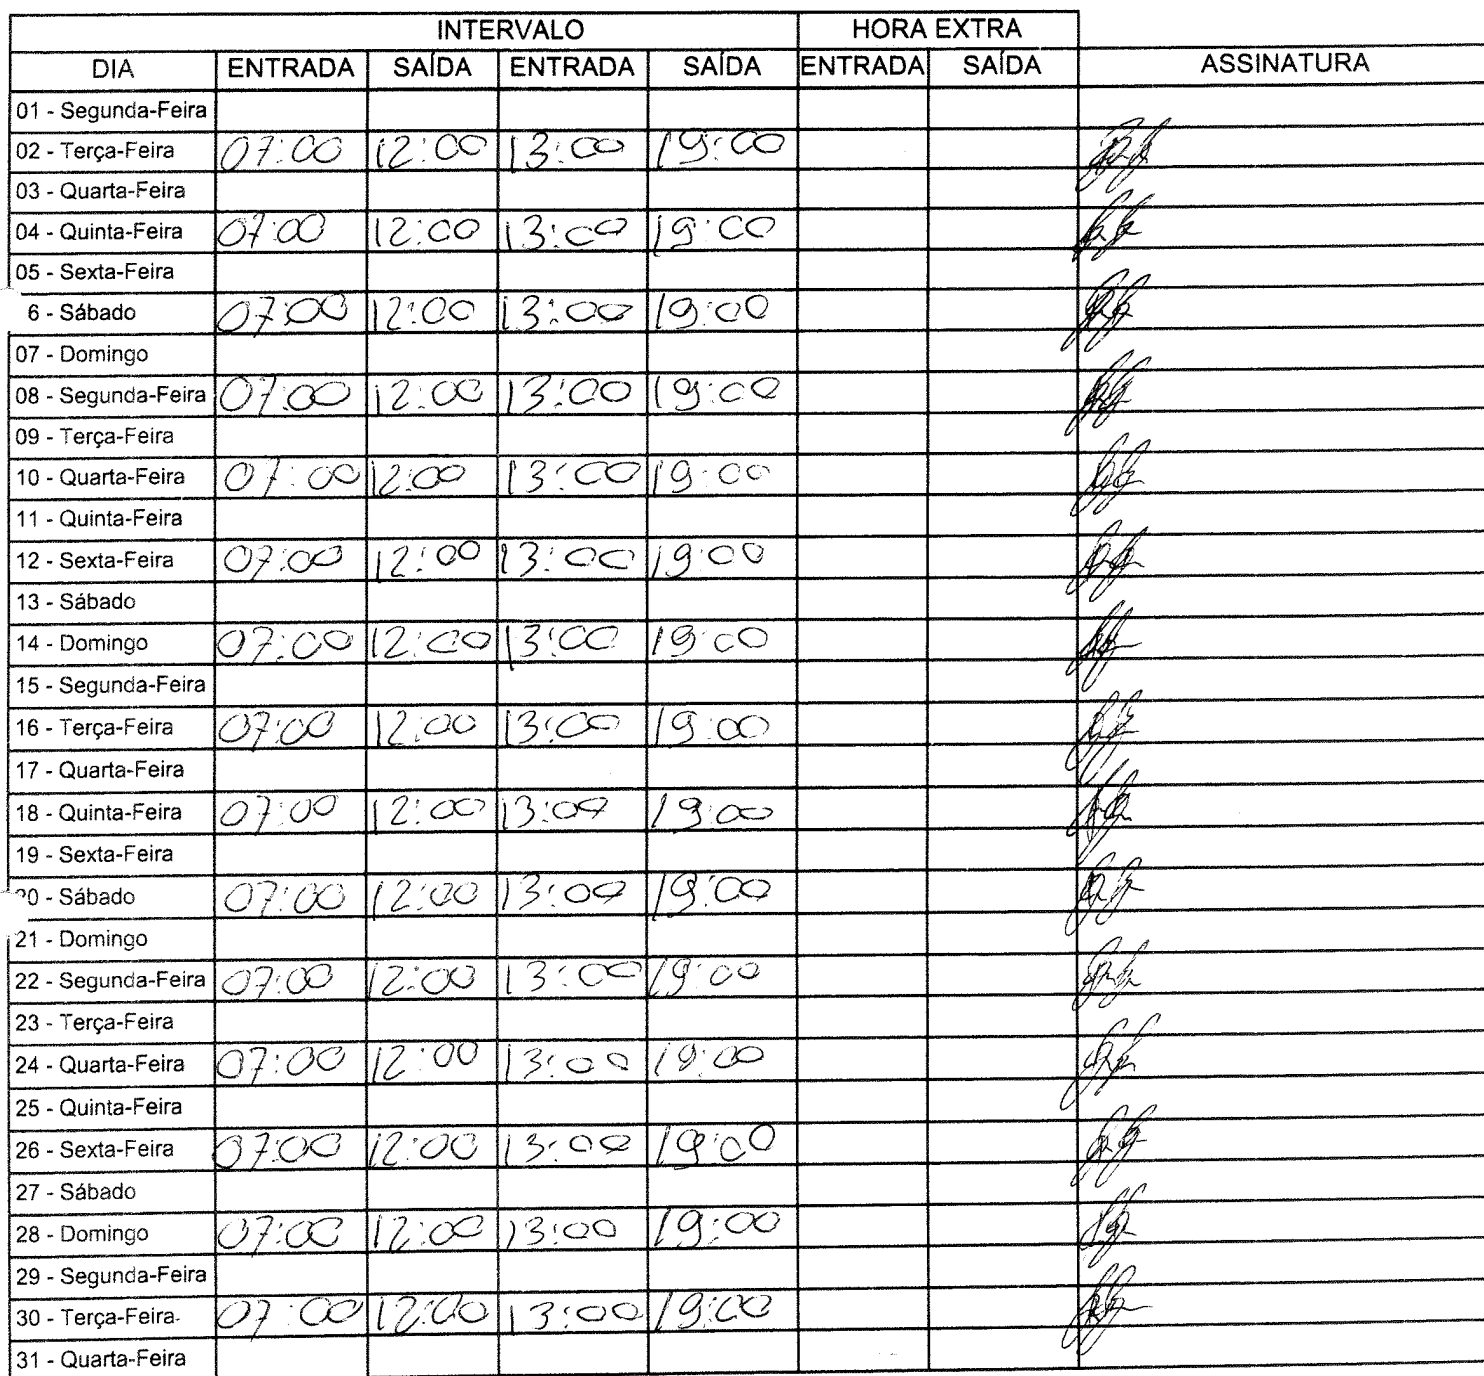 INTERVALO HORA EXTRA
DIA ENTRADA SAÍDA ENTRADA SAÍDA ENTRADA SAÍDA ASSINATURA
01 - Segunda-Feira
02 - Terça-Feira 07:00 12:00 13:00 19:00
03 - Quarta-Feira
04 - Quinta-Feira 07:00 12:00 13:00 19:00
05 - Sexta-Feira
6 - Sábado 07:00 12:00 13:00 19:00
07 - Domingo
08 - Segunda-Feira 07:00 12:00 13:00 19:00
09 - Terça-Feira
10 - Quarta-Feira 07:00 12:00 13:00 19:00
11 - Quinta-Feira
12 - Sexta-Feira 07:00 12:00 13:00 19:00
13 - Sábado
14 - Domingo 07:00 12:00 13:00 19:00
15 - Segunda-Feira
16 - Terça-Feira 07:00 12:00 13:00 19:00
17 - Quarta-Feira
18 - Quinta-Feira 07:00 12:00 13:00 19:00
19 - Sexta-Feira
20 - Sábado 07:00 12:00 13:00 19:00
21 - Domingo
22 - Segunda-Feira 07:00 12:00 13:00 19:00
23 - Terça-Feira
24 - Quarta-Feira 07:00 12:00 13:00 19:00
25 - Quinta-Feira
26 - Sexta-Feira 07:00 12:00 13:00 19:00
27 - Sábado
28 - Domingo 07:00 12:00 13:00 19:00
29 - Segunda-Feira
30 - Terça-Feira 07:00 12:00 13:00 19:00
31 - Quarta-Feira